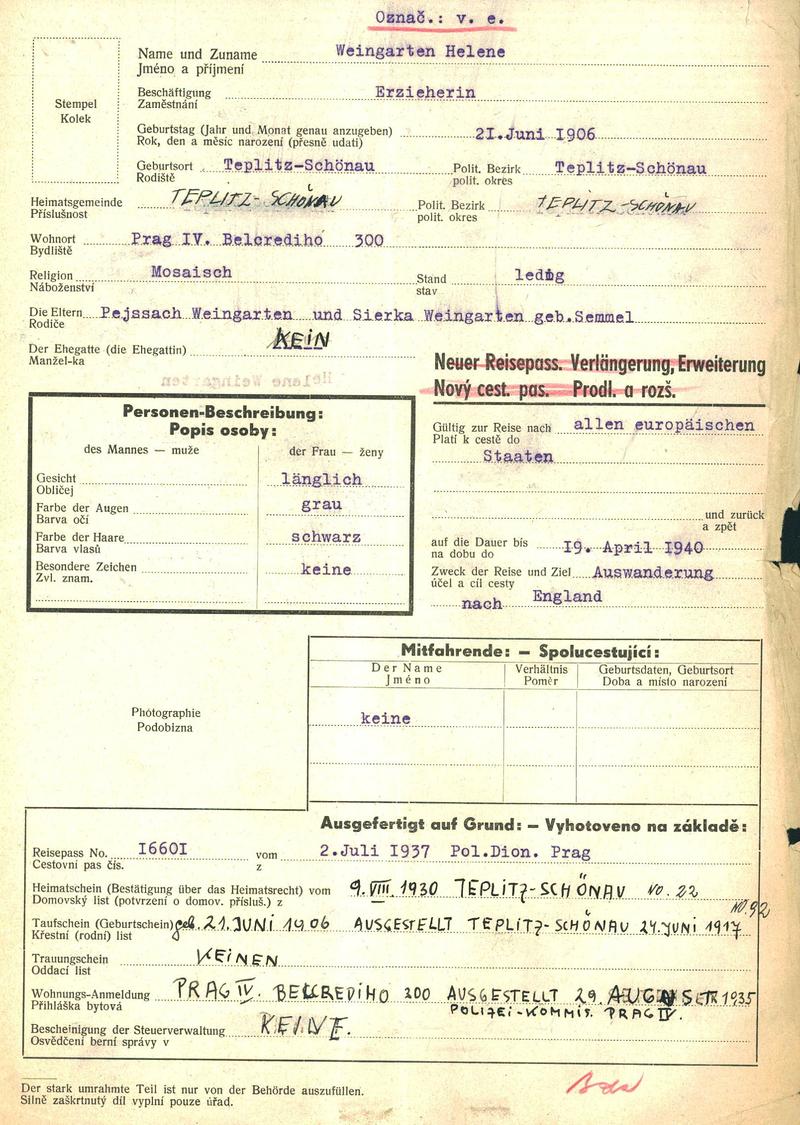 Označ.: v. e.
Stempel
Kolek
Name und Zuname Weingarten Helene
Jméno a příjmení
Beschäftigung Erzieherin
Zaměstnání
Geburtstag (Jahr und Monat genau anzugeben) 2I.Juni I906
Rok, den a měsíc narození (přesně udati)
Geburtsort Teplitz-Schönau Polit. Bezirk Teplitz-Schönau
Rodiště polit. okres
Heimatsgemeinde TEPLITZ-SCHÖNAU Polit. Bezirk TEPLITZ-SCHÖNAU
Příslušnost polit. okres
Wohnort Prag IV. Belcrediho 300
Bydliště
Religion Mosaisch Stand ledig
Náboženství stav
Die Eltern Pejssach Weingarten und Sierka Weingarten geb.Semmel
Rodiče
Der Ehegatte (die Ehegattin) KEIN
Manžel-ka
Helene Weingarten
Neuer Reisepass. Verlängerung, Erweiterung
Nový cest. pas. Prodl. a rozš.
Personen-Beschreibung:
Popis osoby:
des Mannes — muže der Frau — ženy
Gesicht länglich
Obličej
Farbe der Augen grau
Barva očí
Farbe der Haare schwarz
Barva vlasů
Besondere Zeichen keine
Zvl. znam.
Gültig zur Reise nach allen europäischen
Platí k cestě do
Staaten
und zurück
a zpět
auf die Dauer bis I9. April I940
na dobu do
Zweck der Reise und Ziel Auswanderung
účel a cíl cesty
nach England
Mitfahrende: — Spolucestující:
Der Name Verhältnis Geburtsdaten, Geburtsort
Jméno Poměr Doba a místo narození
keine
Photographie
Podobizna
Ausgefertigt auf Grund: — Vyhotoveno na základě:
Reisepass No. I660I vom 2.Juli I937 Pol.Dion. Prag
Cestovní pas čís. z
Heimatschein (Bestätigung über das Heimatsrecht) vom 9. VIII. 1930 TEPLITZ-SCHÖNAU NO. 22
Domovský list (potvrzení o domov. přísluš.) z
NO. 92
Taufschein (Geburtschein) geb. 21. JUNI 1906 AUSGESTELLT TEPLITZ-SCHÖNAU 24. JUNI 1917
Křestní (rodní) list
Trauungschein KEINEN
Oddací list
Wohnungs-Anmeldung PRAG IV. BELCREDIHO 300 AUSGESTELLT 29. 1935
Přihláška bytová POLIZEI-KOMMIS. PRAG IV.
Bescheinigung der Steuerverwaltung KEINE.
Osvědčení berní správy v
Der stark umrahmte Teil ist nur von der Behörde auszufüllen.
Silně zaškrtnutý díl vyplní pouze úřad.